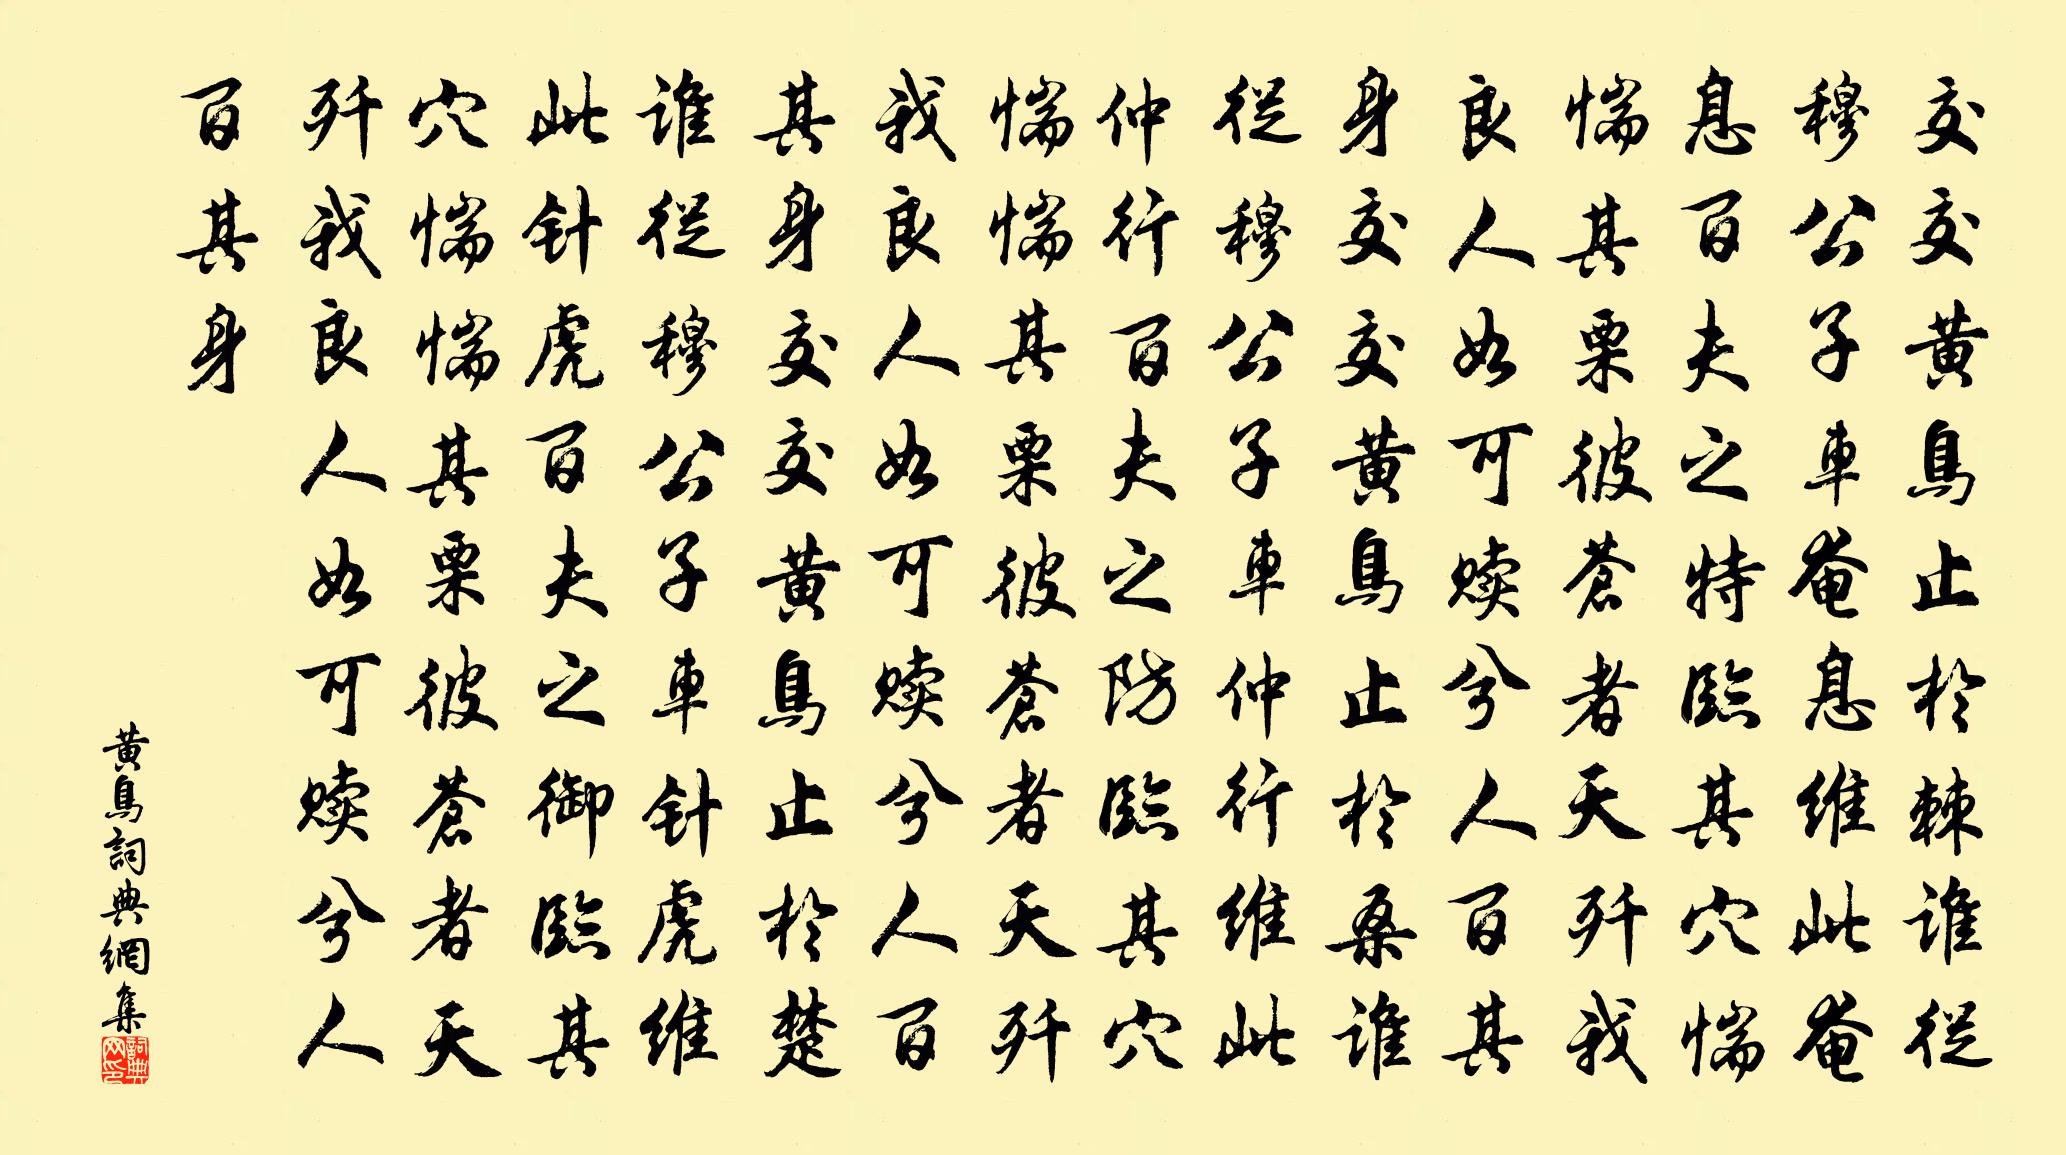 交交黄鳥止於棘誰從
穆公子車奄息維此奄
息百夫之特臨其穴惴
惴其栗彼蒼者天歼我
良人如可赎兮人百其
身交交黄鳥止於桑誰
從穆公子車仲行維此
仲行百夫之防臨其穴
惴惴其栗彼蒼者天歼
我良人如可赎兮人百
其身交交黄鳥止於楚
誰從穆公子車针虎維
此针虎百夫之御臨其
穴惴惴其栗彼蒼者天
歼我良人如可赎兮人
百其身
黄鳥詞典網集
詞典网印